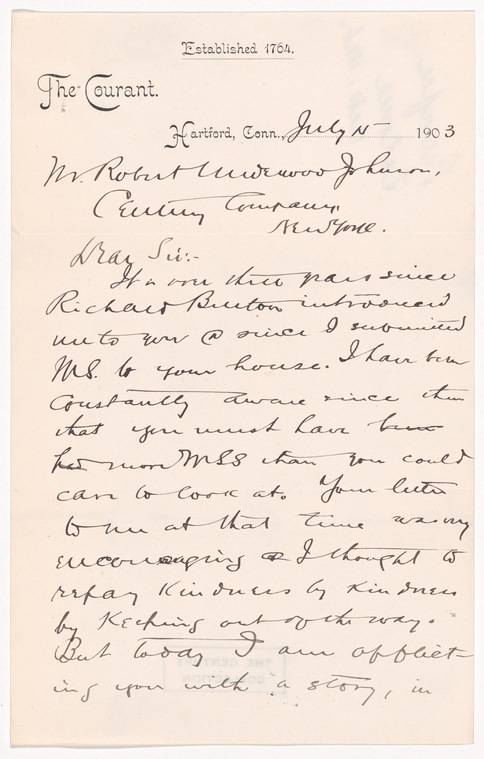 Established 1764.
The Courant.
Hartford, Conn., July 15 1903
Mr. Robert Underwood Johnson,
Century Company,
New York.
Dear Sir:-
It is over three years since
Richard Burton introduced
me to you & since I submitted
MS. to your house. I have been
constantly aware since then
that you must have been
had more MSS than you could
care to look at. Your letter
to me at that time was very
encouraging & I thought to
repay kindness by kindness
by keeping out of the way.
But today I am afflict-
ing you with a story, in